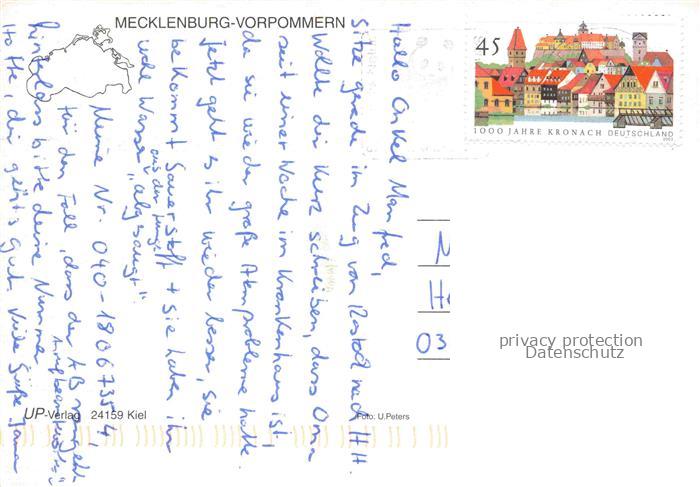 MECKLENBURG-VORPOMMERN
45
1000 JAHRE KRONACH DEUTSCHLAND
Hallo Onkel Manfred,
sitze gerade im Zug von Rostock nach HH.
Wollte dir kurz schreiben, dass Oma
seit einer Woche im Krankenhaus ist,
da sie wieder große Atemprobleme hatte.
Jetzt geht es ihr wieder besser, sie
bekommt Sauerstoff + sie haben ihr
viel Wasser aus der Lunge "abgesaugt".
Meine Nr. 040-18067354,
für den Fall, dass der AB rangeht
Anrufbeantworter
hinterlass bitte deine Nummer
Hoffe, dir geht's gut. Viele Grüße
03
privacy protection
Datenschutz
UP-Verlag 24159 Kiel
Foto: U.Peters